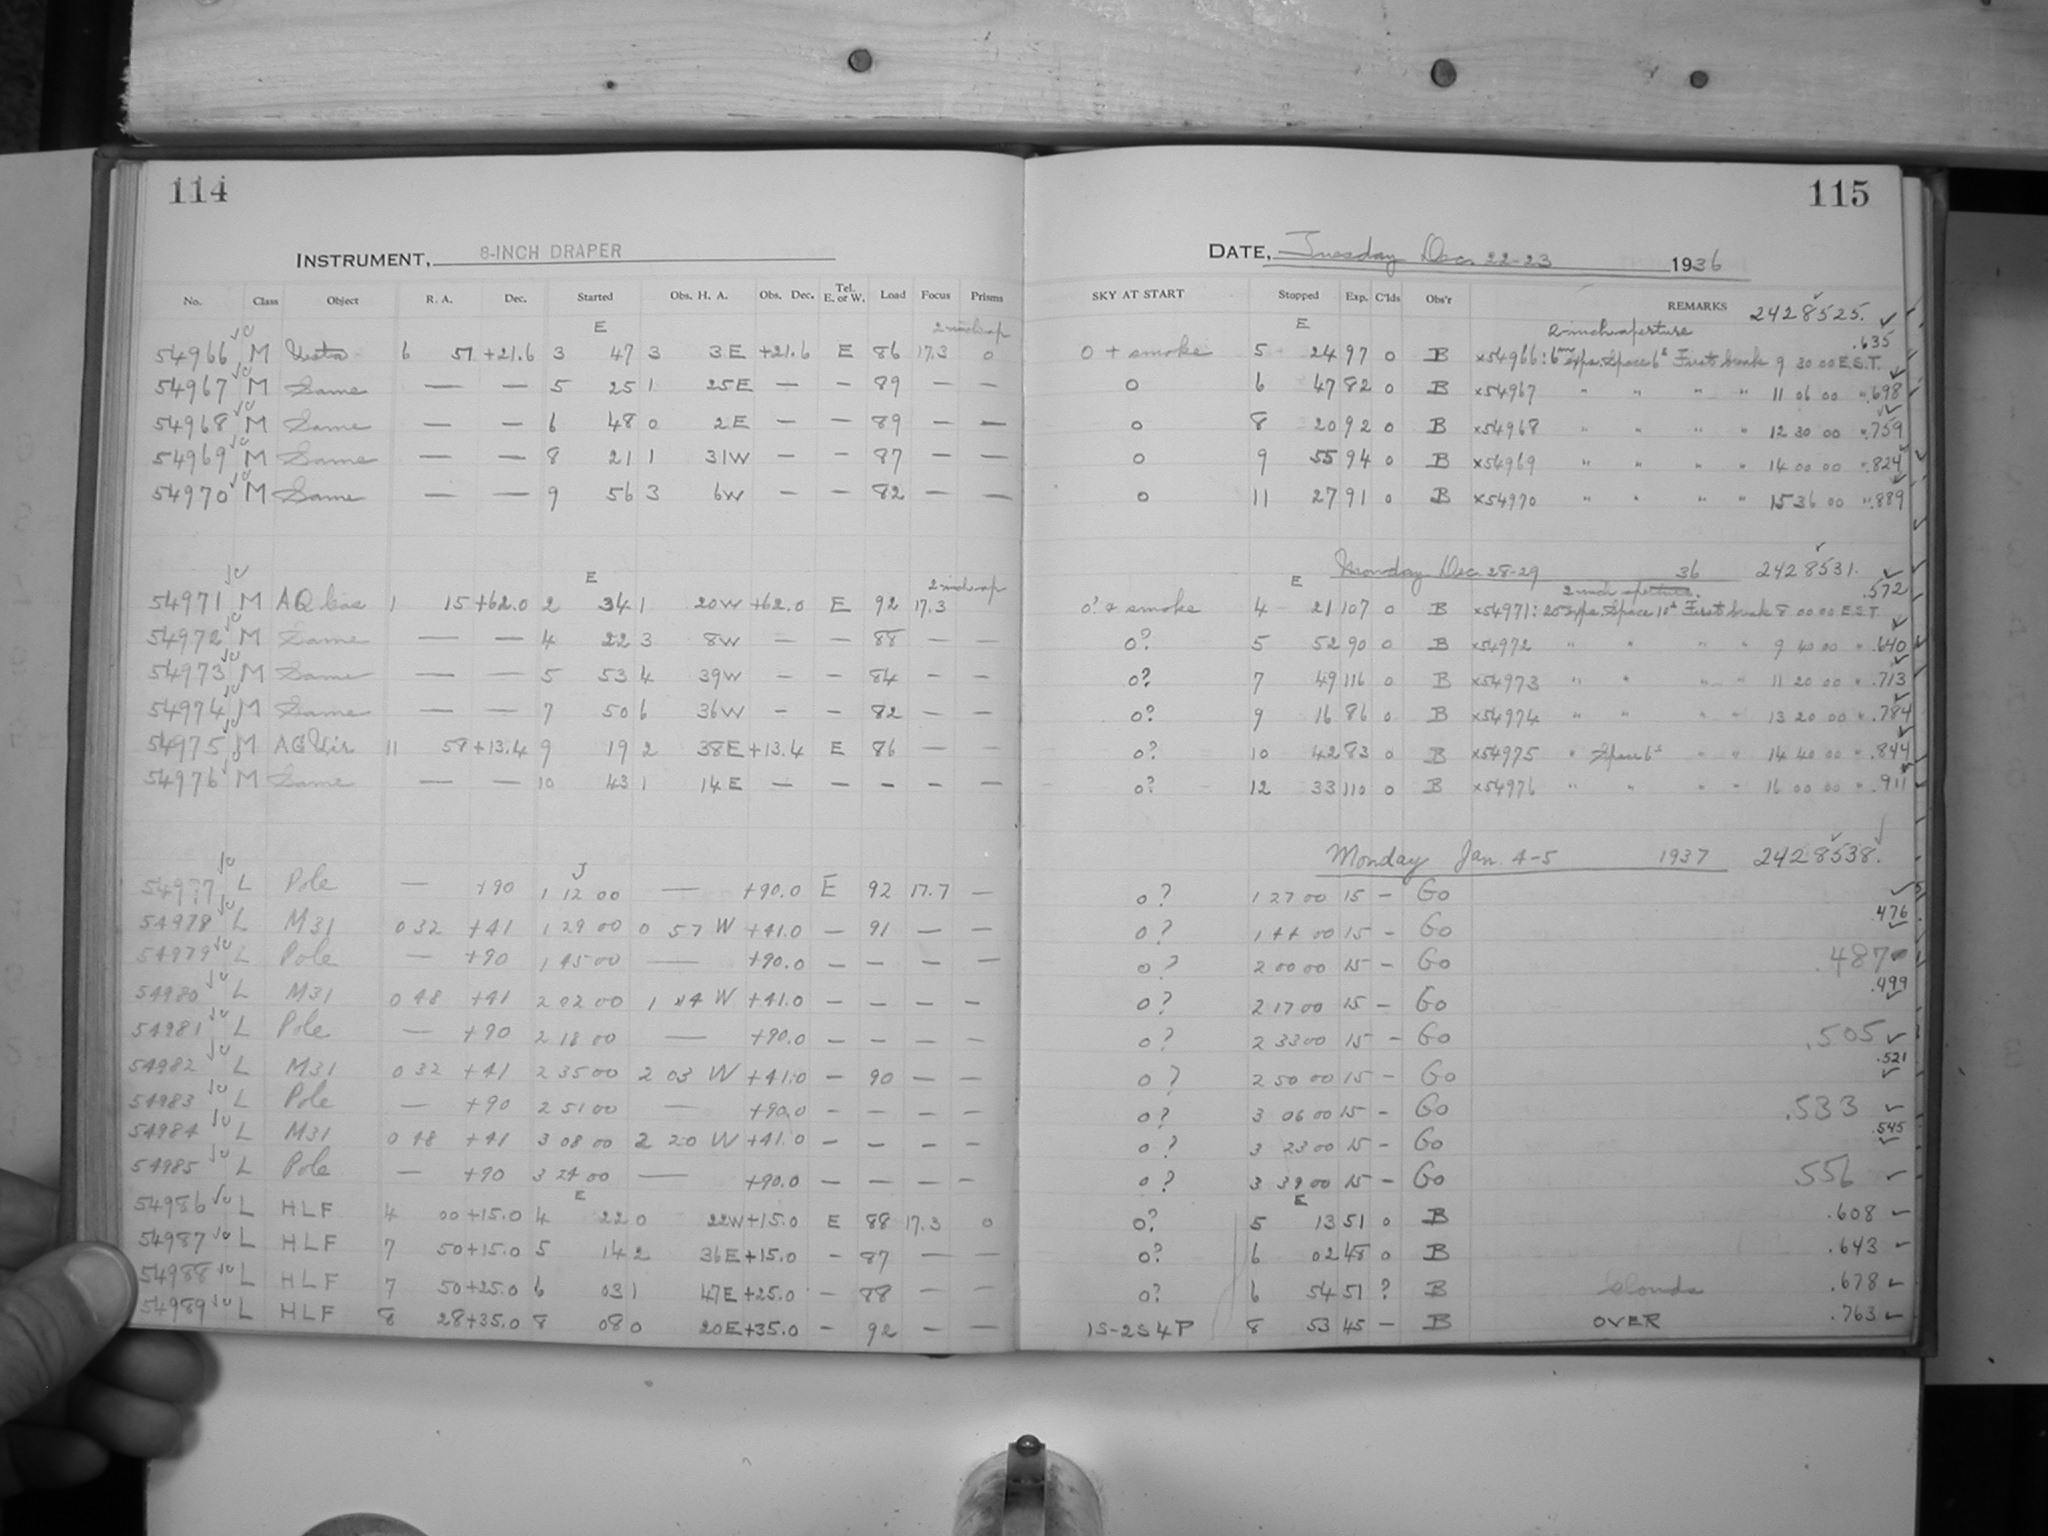 114
INSTRUMENT, 8-INCH DRAPER
No. Class Object R. A. Dec. Started Obs. H. A. Obs. Dec. Tel. E. or W. Load Focus Prisms
E 2-inch ap
54966 M Vesta 6 57 +21.6 3 47 3 3E +21.6 E 86 17.3 0
54967 M Same — — 5 25 1 25E — — 89 — —
54968 M Same — — 6 48 0 2E — — 89 — —
54969 M Same — — 8 21 1 31W — — 87 — —
54970 M Same — — 9 56 3 6W — — 82 — —
E 2-inch ap
54971 M AQ Cas 1 15 +62.0 2 34 1 20W +62.0 E 92 17.3
54972 M Same — — 4 22 3 8W — — 88 — —
54973 M Same — — 5 53 4 39W — — 84 — —
54974 M Same — — 7 50 6 36W — — 82 — —
54975 M AG Vir 11 58 +13.4 9 19 2 38E +13.4 E 86 — —
54976 M Same — — 10 43 1 14E — — — — —
J
54977 L Pole — +90 1 12 00 — +90.0 E 92 17.7 —
54978 L M31 0 32 +41 1 29 00 0 57 W +41.0 — 91 — —
54979 L Pole — +90 1 45 00 — +90.0 — — — —
54980 L M31 0 48 +41 2 02 00 1 14 W +41.0 — — — —
54981 L Pole — +90 2 18 00 — +90.0 — — — —
54982 L M31 0 32 +41 2 35 00 2 03 W +41.0 — 90 — —
54983 L Pole — +90 2 51 00 — +90.0 — — — —
54984 L M31 0 48 +41 3 08 00 2 20 W +41.0 — — — —
54985 L Pole — +90 3 24 00 — +90.0 — — — —
E
54986 L HLF 4 00 +15.0 4 22 0 22W +15.0 E 88 17.3 0
54987 L HLF 7 50 +15.0 5 14 2 36E +15.0 — 87 — —
54988 L HLF 7 50 +25.0 6 03 1 47E +25.0 — 88 — —
54989 L HLF 8 28 +35.0 8 08 0 20E +35.0 — 92 — —
115
DATE, Tuesday Dec. 22-23 1936
SKY AT START Stopped Exp. C'lds Obs'r REMARKS 2428525.
E 2-inch aperture .635
0 + smoke 5 24 97 0 B x54966: 6 exps. Space 6s First break 9 30 00 E.S.T.
0 6 47 82 0 B x54967 " " " " 11 06 00 " .698
0 8 20 92 0 B x54968 " " " " 12 30 00 " .759
0 9 55 94 0 B x54969 " " " " 14 00 00 " .824
0 11 27 91 0 B x54970 " " " " 15 36 00 " .889
Monday Dec. 28-29 36 2428531.
E 2-inch aperture. .572
0? & smoke 4 21 107 0 B x54971: 20 exps. Space 10s First break 8 00 00 E.S.T.
0? 5 52 90 0 B x54972 " " " " 9 40 00 " .640
0? 7 49 116 0 B x54973 " " " " 11 20 00 " .713
0? 9 16 86 0 B x54974 " " " " 13 20 00 " .784
0? 10 42 83 0 B x54975 " Space 6s " " 14 40 00 " .844
0? 12 33 110 0 B x54976 " " " " 16 00 00 " .911
Monday Jan. 4-5 1937 2428538.
0? 1 27 00 15 — Go
.476
0? 1 44 00 15 — Go
0? 2 00 00 15 — Go .487
.499
0? 2 17 00 15 — Go
0? 2 33 00 15 — Go .505
.521
0? 2 50 00 15 — Go
0? 3 06 00 15 — Go .533
.545
0? 3 23 00 15 — Go
0? 3 39 00 15 — Go .556
E
0? 5 13 51 0 B .608
0? 6 02 48 0 B .643
0? 6 54 51 ? B Clouds .678
1S-2S4P 8 53 45 — B OVER .763